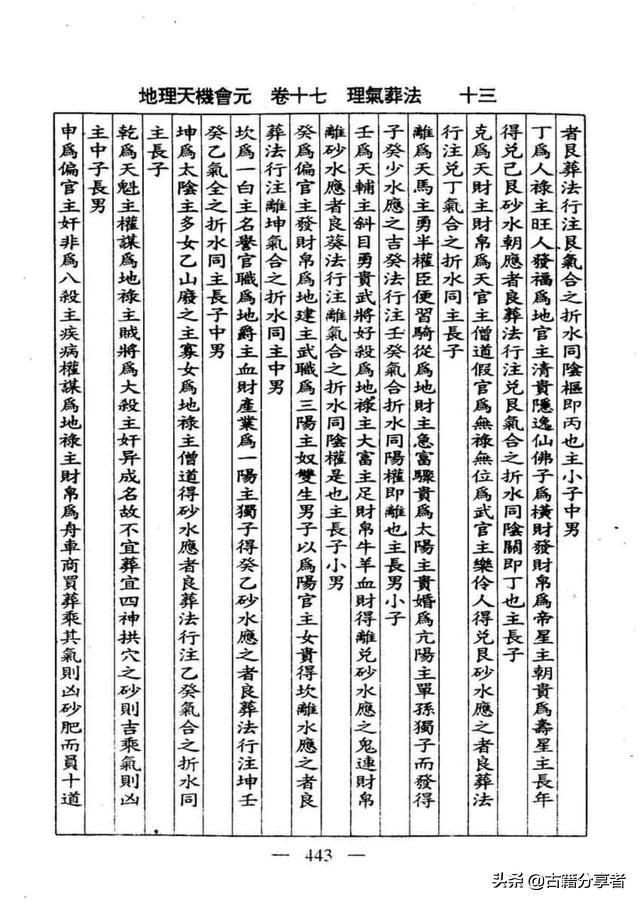 地理天機會元　卷十七　理氣葬法　十三
者艮葬法行注艮氣合之折水同陰樞即丙也主小子中男
丁爲人祿主旺人發福爲地官主清貴隱逸仙佛子爲橫財發財帛爲帝星主朝貴爲壽星主長年
得兌己艮砂水朝應者艮葬法行注兌艮氣合之折水同陰關即丁也主長子
克爲天財主財帛爲天官主僧道假官爲無祿無位爲武官主樂伶人得兌艮砂水應之者良葬法
行注兌丁氣合之折水同主長子
離爲天馬主勇半權臣便習騎從爲地財主急富驟貴爲太陽主貴婚爲亢陽主單孫獨子而發得
子癸少水應之吉癸法行注壬癸氣合折水同陽權即離也主長男小子
壬爲天輔主斜目勇貴武將好殺爲地祿主大富主足財帛牛羊血財得離兌砂水應之鬼連財帛
離砂水應者良葵法行注離氣合之折水同陰權是也主長子小男
癸爲偏官主發財帛爲地建主武職爲三陽主奴雙生男子以爲陽官主女貴得坎離水應之者良
葬法行注離坤氣合之折水同主中男
坎爲一白主名譽官職爲地爵主血財產業爲一陽主獨子得癸乙砂水應之者良葬法行注坤壬
癸乙氣全之折水同主長子中男
坤爲太陰主多女乙山廢之主寡女爲地祿主僧道得砂水應者良葬法行注乙癸氣合之折水同
主長子
乾爲天魁主權謀爲地祿主賊將爲大殺主奸异成名故不宜葬宜四神拱穴之砂則吉乘氣則凶
主中子長男
申爲偏官主奸非爲八殺主疾病權謀爲地祿主財帛爲舟車商買葬乘其氣則凶砂肥而員十道
— 443 —
头条 @古籍分享者